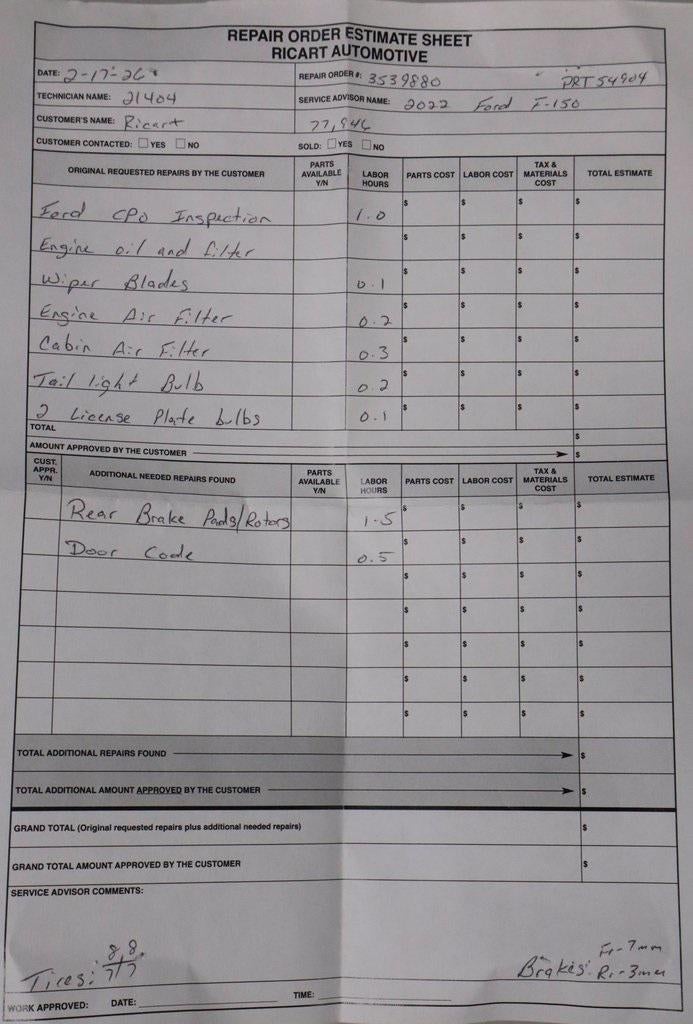 REPAIR ORDER ESTIMATE SHEET
RICART AUTOMOTIVE
DATE: 2-17-26 REPAIR ORDER #: 3539880 PRT54904
TECHNICIAN NAME: 21404 SERVICE ADVISOR NAME: 2022 Ford F-150
CUSTOMER'S NAME: Ricart 77,946
CUSTOMER CONTACTED: YES NO SOLD: YES NO
ORIGINAL REQUESTED REPAIRS BY THE CUSTOMER PARTS AVAILABLE Y/N LABOR HOURS PARTS COST LABOR COST TAX & MATERIALS COST TOTAL ESTIMATE
Ford CPO Inspection 1.0 $ $ $ $
Engine oil and filter $ $ $ $
Wiper Blades 0.1 $ $ $ $
Engine Air Filter 0.2 $ $ $ $
Cabin Air Filter 0.3 $ $ $ $
Tail light Bulb 0.2 $ $ $ $
2 License Plate bulbs 0.1 $ $ $ $
TOTAL $
AMOUNT APPROVED BY THE CUSTOMER $
CUST. APPR. Y/N ADDITIONAL NEEDED REPAIRS FOUND PARTS AVAILABLE Y/N LABOR HOURS PARTS COST LABOR COST TAX & MATERIALS COST TOTAL ESTIMATE
Rear Brake Pads/Rotors 1.5 $ $ $ $
Door Code 0.5 $ $ $ $
$ $ $ $
$ $ $ $
$ $ $ $
$ $ $ $
$ $ $ $
TOTAL ADDITIONAL REPAIRS FOUND $
TOTAL ADDITIONAL AMOUNT APPROVED BY THE CUSTOMER $
GRAND TOTAL (Original requested repairs plus additional needed repairs) $
GRAND TOTAL AMOUNT APPROVED BY THE CUSTOMER $
SERVICE ADVISOR COMMENTS:
Tires: 8/7 8/7
Brakes: Fr-7mm
Rr-3mm
WORK APPROVED: DATE: TIME: